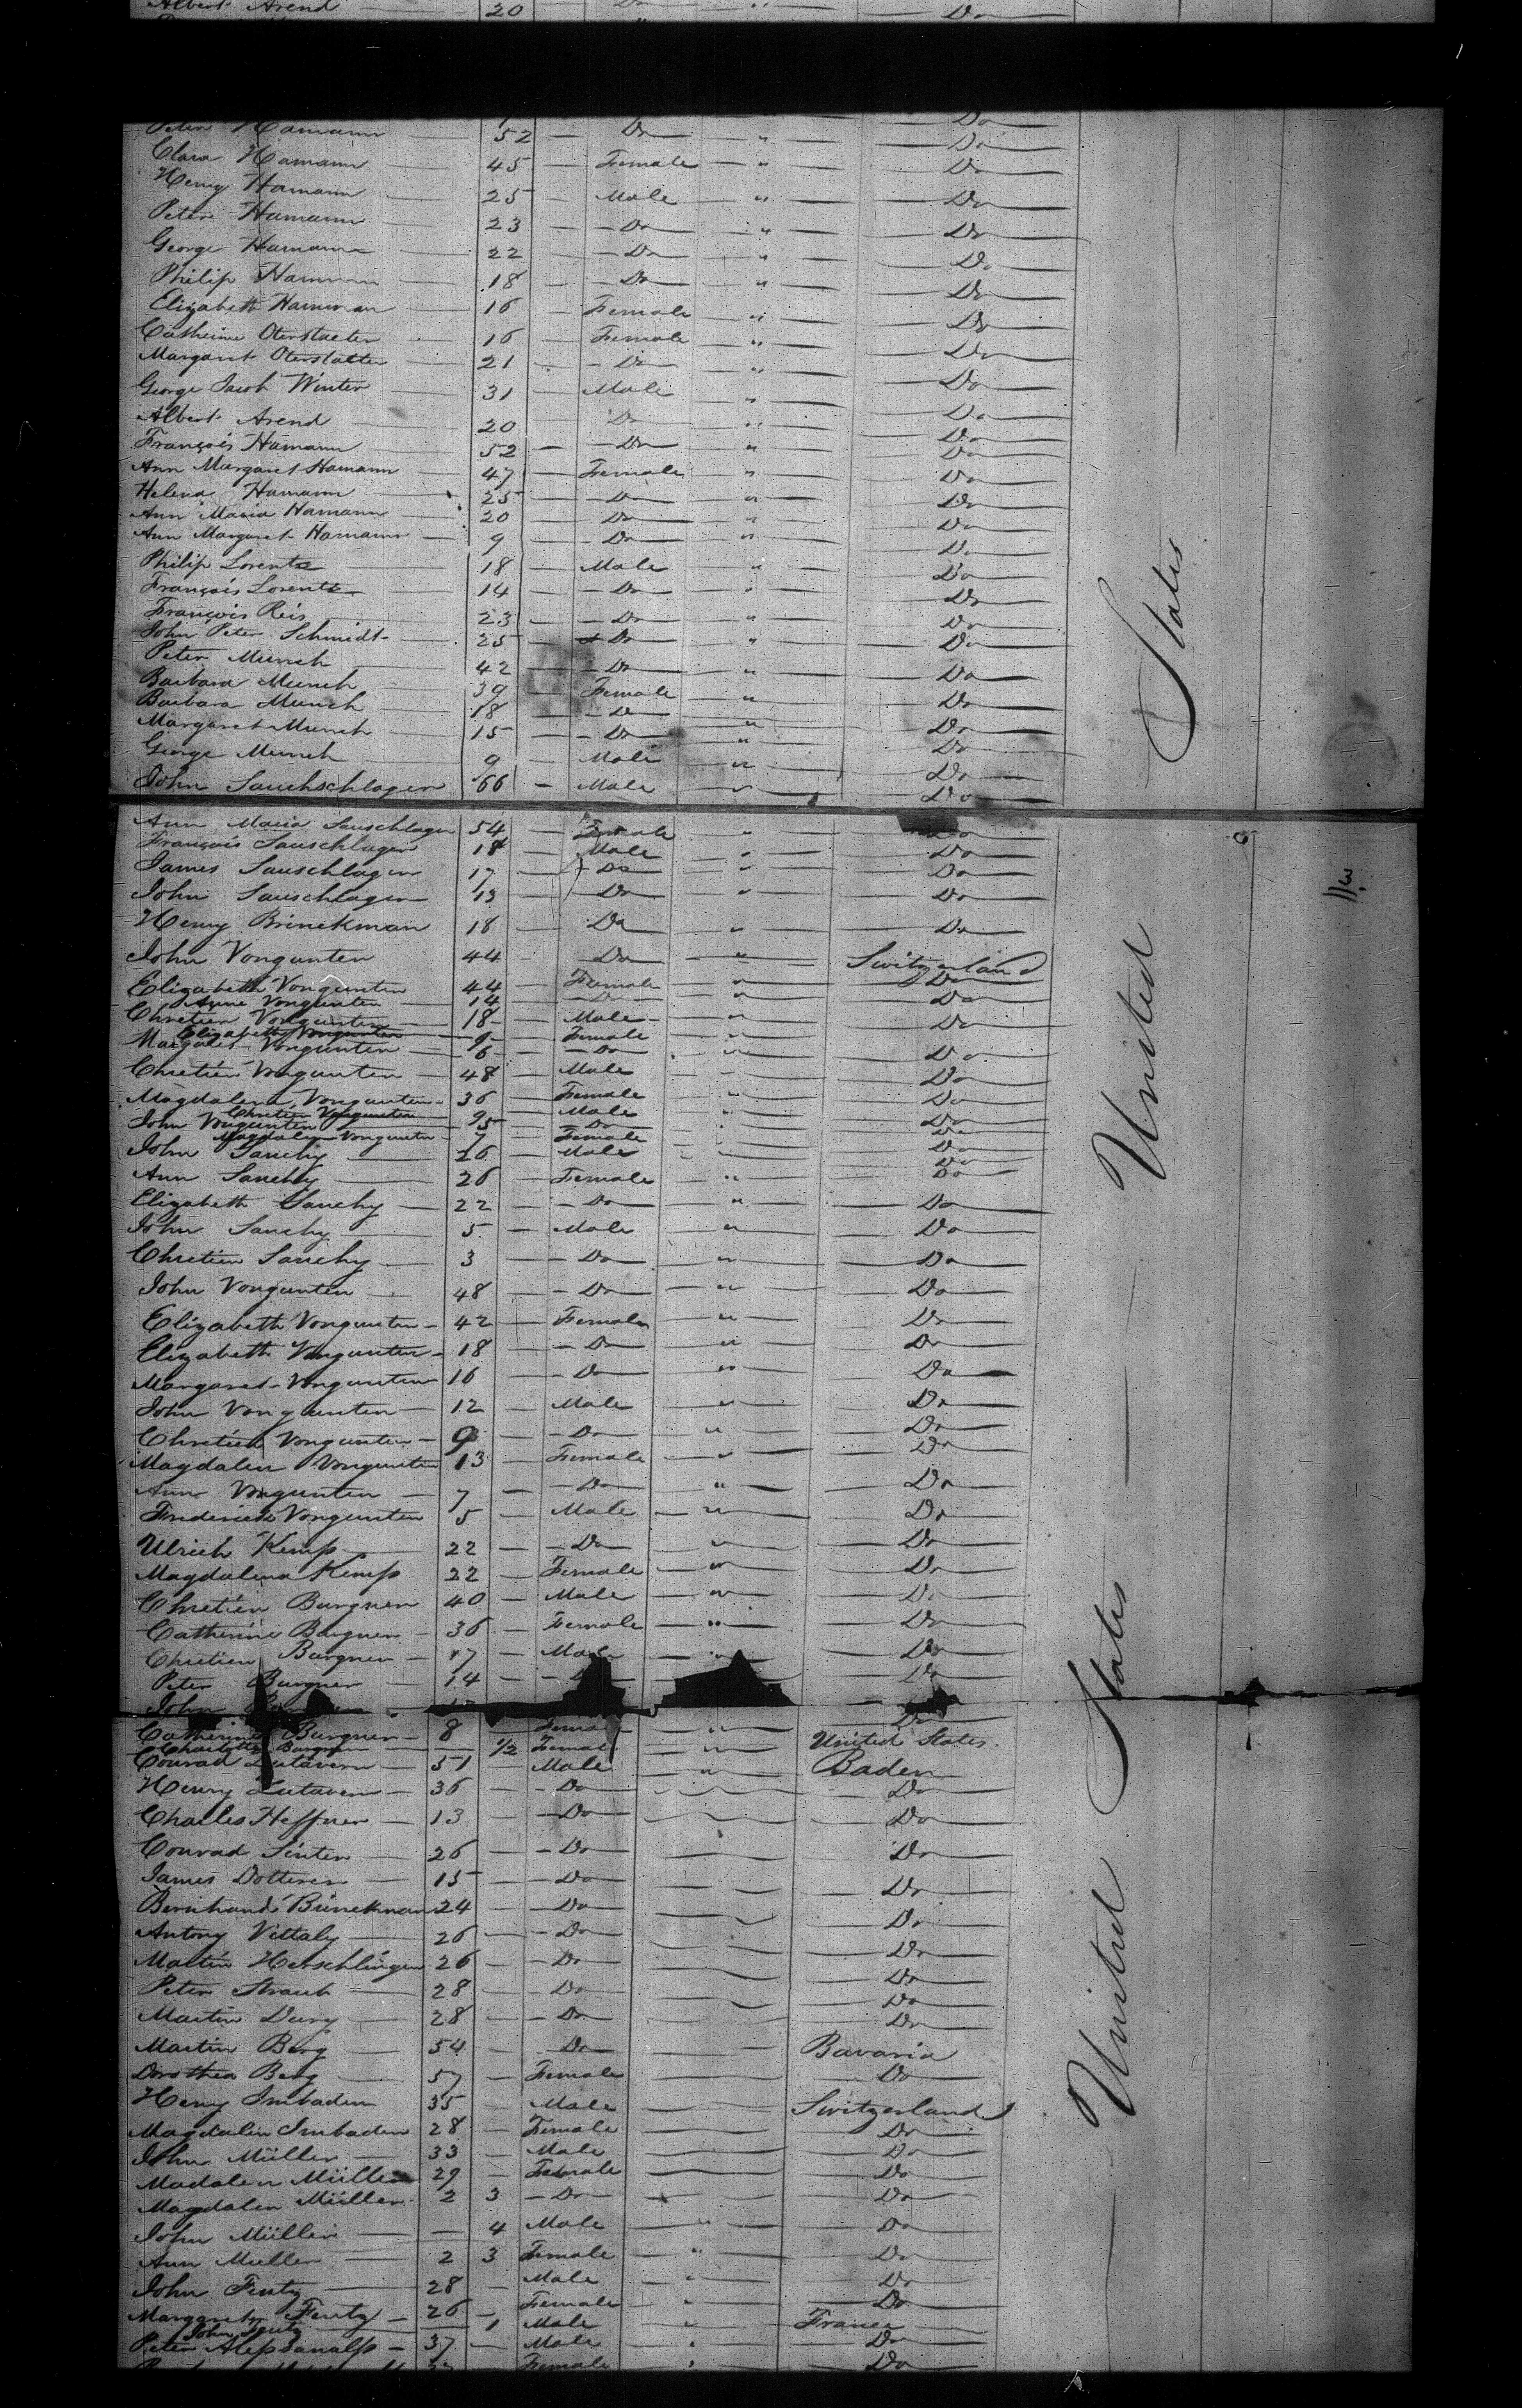 Albert Arend 20 Do " Do
Peter Hamann 52 Do " Do
Clara Hamann 45 Female " Do
Henry Hamann 25 Male " Do
Peter Hamann 23 Do " Do
George Hamann 22 Do " Do
Philip Hamann 18 Do " Do
Elizabeth Hamman 16 Female " Do
Catherine Oterstaeter 16 Female " Do
Margaret Oterstatter 21 Do " Do
George Jacob Winter 31 Male " Do
Albert Arend 20 Do " Do
François Hamann 52 Do " Do
Ann Margaret Hamann 47 Female " Do
Helena Hamann 25 Do " Do
Ann Maria Hamann 20 Do " Do
Ann Margaret Hamann 9 Do " Do
Philip Lorentz 18 Male " Do
François Lorentz 14 Do " Do
François Reis 23 Do " Do
John Peter Schmidt 25 Do " Do
Peter Munch 42 Do " Do
Barbara Munch 39 Female " Do
Barbara Munch 18 Do " Do
Margaret Munch 15 Do " Do
George Munch 9 Male " Do
John Sauchschlager 66 Male " Do
Ann Maria Sauschlager 54 Female " Do
François Sauschlager 18 Male " Do
James Sauschlager 17 Do " Do
John Sauschlager 13 Do " Do
Henry Brinckman 18 Do " Do
John Vongunten 44 Do " Switzerland
Elizabeth Vongunten 44 Female " Do
Anne Vongunten 14 Do " Do
Chretien Vongunten 18 Male " Do
Elizabeth Vongunten 9 Female "
Margaret Vongunten 6 Do " Do
Chretien Vongunten 48 Male " Do
Magdalena Vongunten 36 Female " Do
Chretien Vongunten 9 Male " Do
John Vongunten 5 Do " Do
Magdalen Vongunten 7 Female " Do
John Sauchy 26 Male " Do
Ann Sauchy 26 Female " Do
Elizabeth Sauchy 22 Do " Do
John Sauchy 5 Male " Do
Chretien Sauchy 3 Do " Do
John Vongunten 48 Do " Do
Elizabeth Vongunten 42 Female " Do
Elizabeth Vongunten 18 Do " Do
Margaret Vongunten 16 Do " Do
John Vongunten 12 Male " Do
Chretien Vongunten 9 Do " Do
Magdalen Vongunten 13 Female " Do
Ann Vongunten 7 Do " Do
Frederick Vongunten 5 Male " Do
Ulrich Kemp 22 Do " Do
Magdalena Kemp 22 Female " Do
Chretien Burgner 40 Male " Do
Catherine Burgner 36 Female " Do
Chretien Burgner 17 Male " Do
Peter Burgner 14 Do
John
Catherine Burgner 8 Female " Do
Charlotte Burgner 1/2 Female " United States
Conrad Lutavern 51 Male " Baden
Henry Lutavern 36 Do Do
Charles Heffner 13 Do Do
Conrad Sinter 26 Do Do
James Dotterer 15 Do Do
Bernhard Brinckman 24 Do Do
Antony Vittaly 26 Do Do
Martin Herschlinger 26 Do Do
Peter Straub 28 Do Do
Martin Durg 28 Do Do
Martin Berg 54 Do Bavaria
Dorothea Berg 57 Female Do
Henry Imbaden 35 Male Switzerland
Magdalen Imbaden 28 Female Do
John Müller 33 Male Do
Madalen Müller 29 Female Do
Magdalen Müller 2 3 Do Do
John Müller 4 Male " Do
Ann Muller 2 3 Female " Do
John Feutz 28 Male " Do
Margaret Feutz 26 Female " Do
John Feutz 1 Male " France
Peter 37 Male " Do
Female " Do
United States
United States